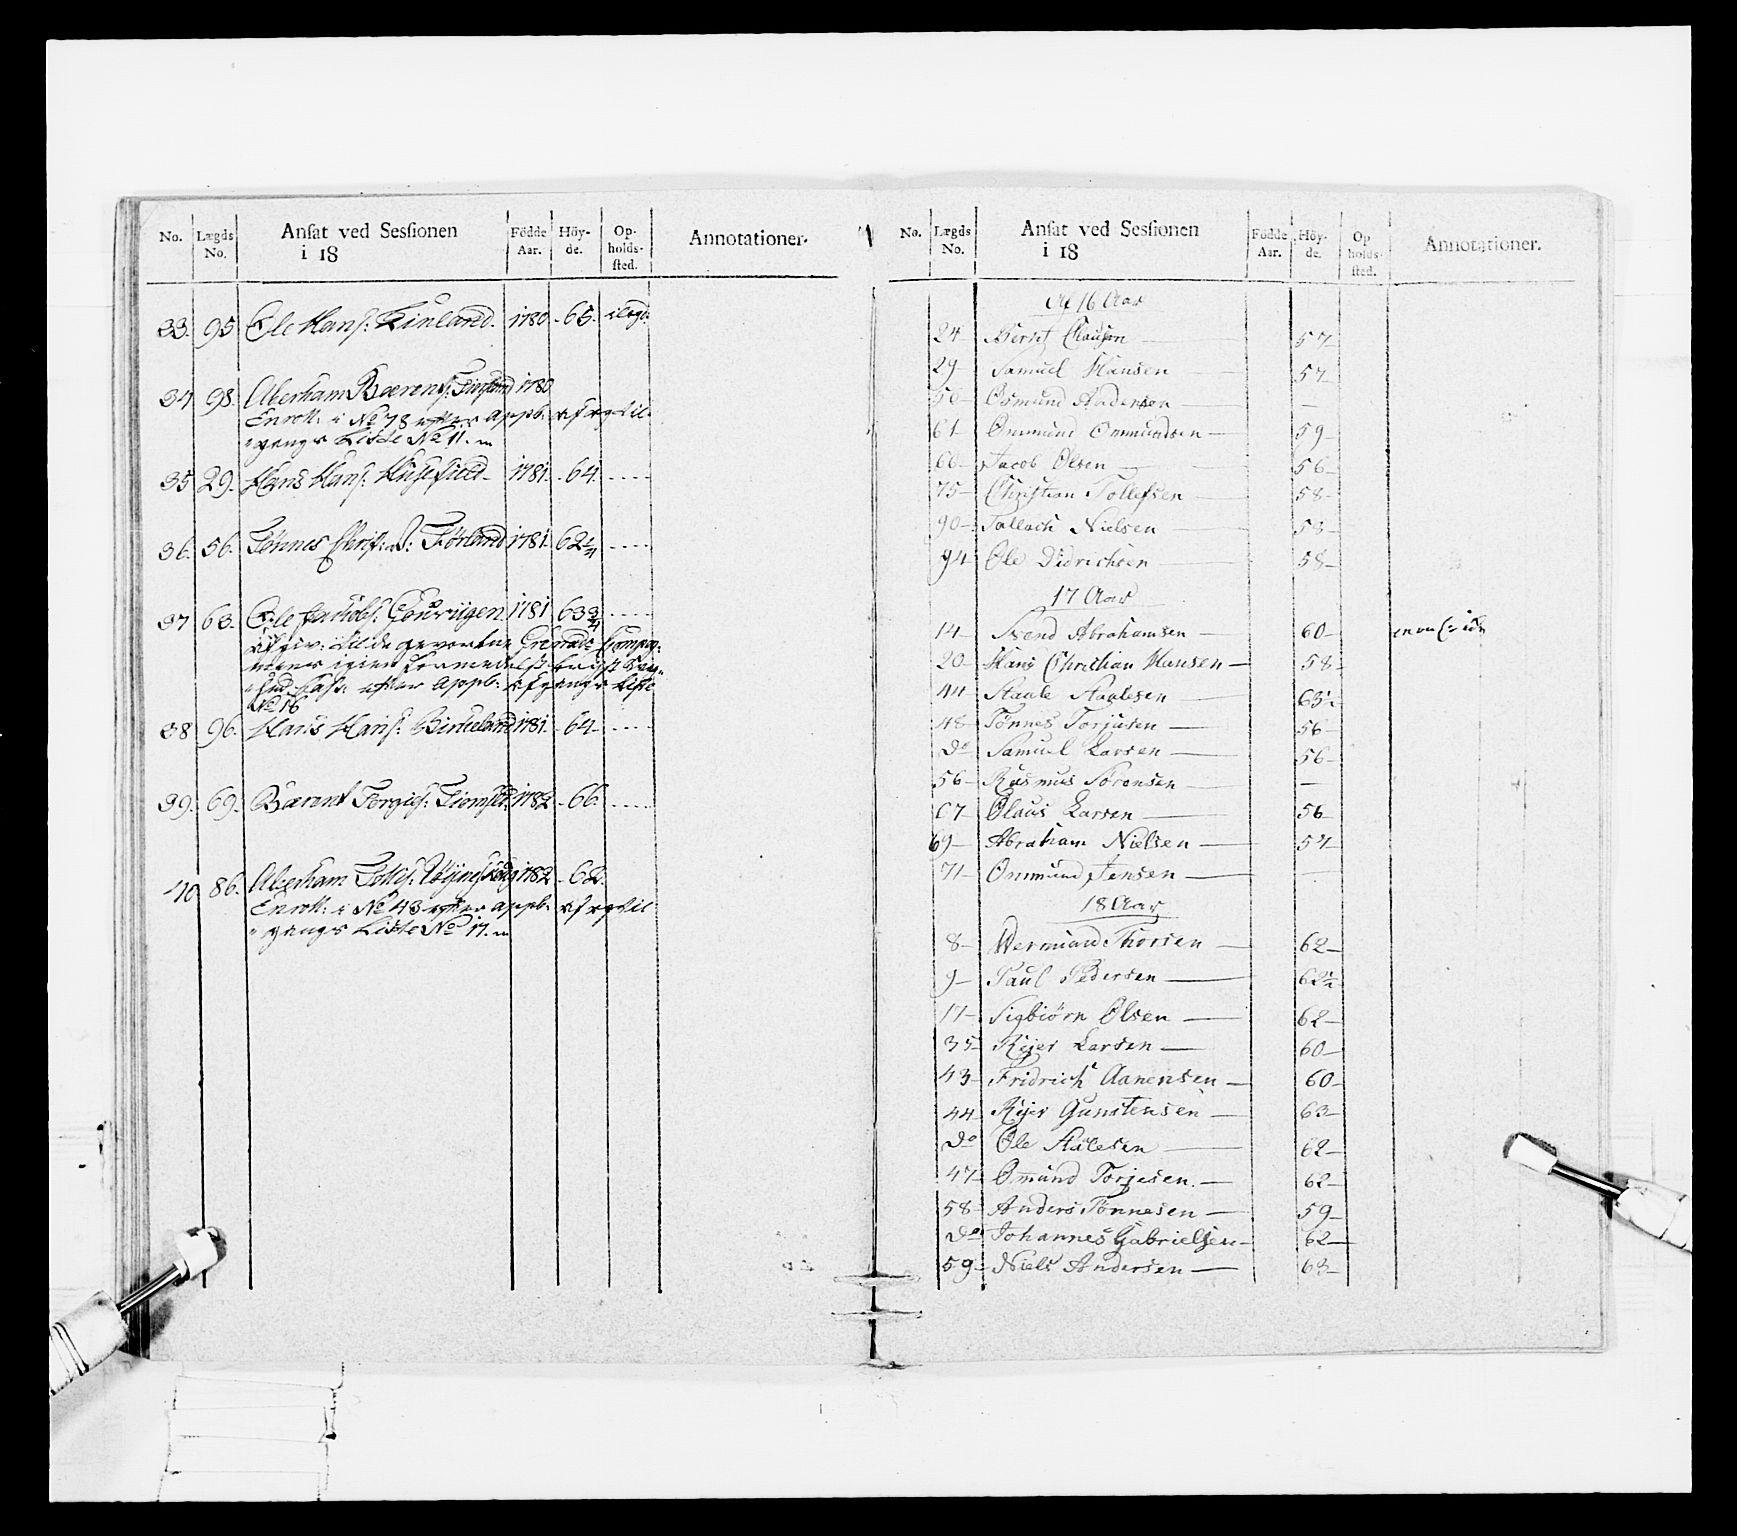 No. Lægds No. Ansat ved Sessionen i 18 Födde Aar. Höy-de. Op-holds-sted. Annotationer.
33. 95. Ole Hans: Kinland. 1780. 65. ilegd.
34 98. Aberham Bærents: 1780
Enroll: i No 78 efter Appb: afgtil-
gangs Liste No 11.
35 29. Hans Hans: Husefield 1781. 64. ....
36. 56. Tønnes Christ: S: Førland 1781. 62 1/4 ....
37 63. Ole Jacobs: 1781 63 3/4 ....
Compag:
igien
efter Appb: afgangs Liste
No 16
38 96. Hans Hans: Birkeland 1781. 64. ....
39. 69. Bærent Torgies: 1782 66. ....
40 86. Aberham Tollis: 1782. 62.
Enroll: i No 43 efter Appb: afgtil
gangs Liste No 17.
No. Lægds No. Ansat ved Sessionen i 18 Födde Aar. Höy-de. Op holds-sted. Annotationer.
Af 16 Aar
24 Bernt Clausen — 57
29 Samuel Hansen — 57
50 Osmund Andersen — —
61 Ommund Ommundsen — 59
66 Jacob Olsen — 56
75 Christian Tollefsen — 58
90 Tallach Nielsen — 58
94 Ole Didrichsen — 58
17 Aar
14 Svend Abrahamsen — 60
20 Hans Christian Hansen — 58
44 Staale Staalesen — 63½
48 Tønnes Torjusen — 56
Do Samuel Larsen — 56
56 Rasmus Sørensen — —
67 Olaus Larsen — 56
69 Abraham Nielsen — 54
71 Ommund Jensen — —
18 Aar
8 Wermund Thorsen — 62
9 Paul Pedersen — 62½
17 Sigbiörn Olsen — 62
35 Reier Larsen — 60
43 Fridrich Aanensen — 60
44 Reier Gunstensen — 63
Do Ole Stalesen — 62
47 Omund Torjesen. — 62
58 Anders Tønnesen — 59
Do Johannes Gabrielsen — 62
59 Niels Andersen — 63